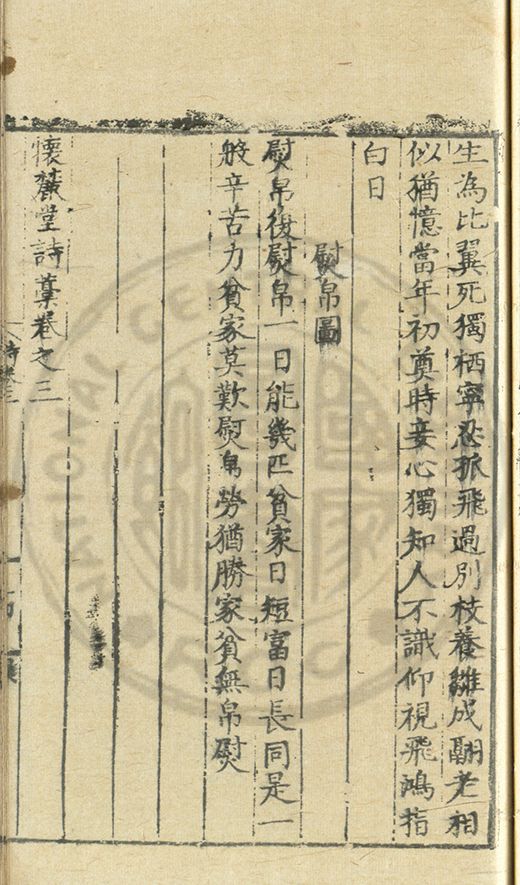 生為比翼死獨栖寧忍孤飛過別枝養雛成翮老相
似猶憶當年初奠時妾心獨知人不識仰視飛鴻指
白日
熨帛圖
熨帛復熨帛一日能幾匹貧家日短富日長同是一
般辛苦力貧家莫歎熨帛勞猶勝家貧無帛熨
懷麓堂詩藁卷之三